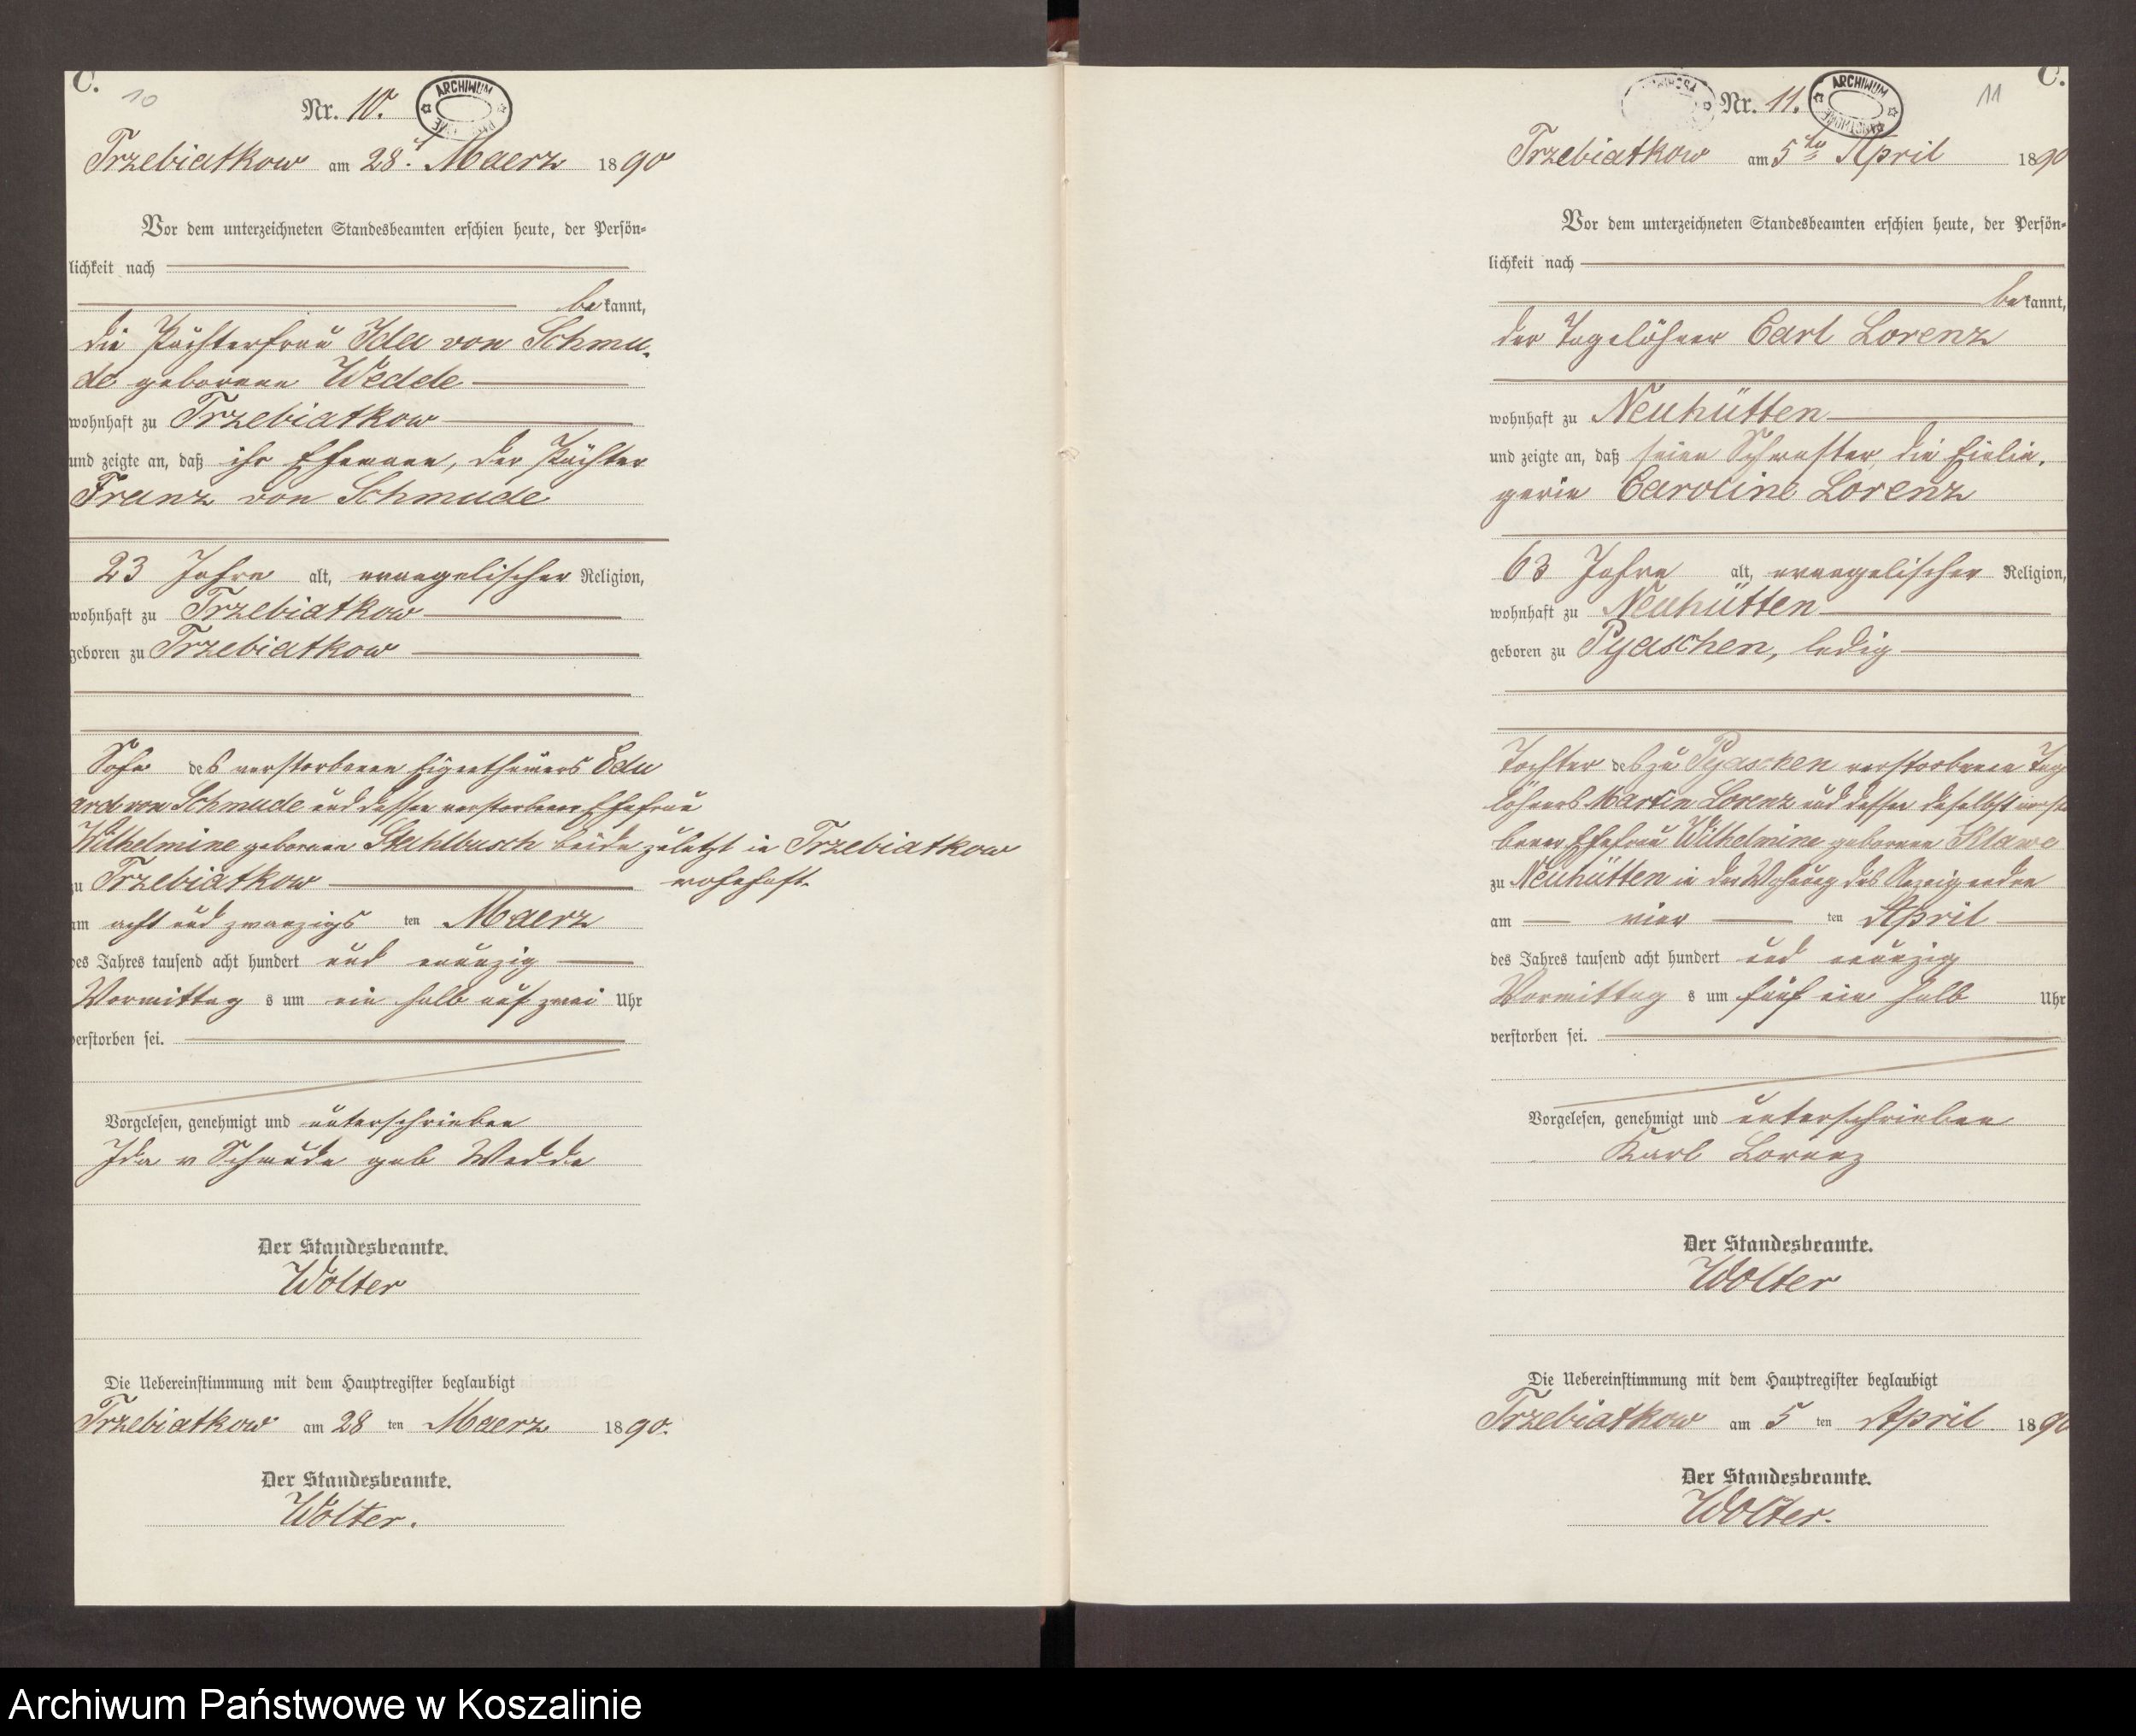 C.
10
Nr. 10.
ARCHIWUM
Trzebiatkow am 28.t Maerz 1890
Vor dem unterzeichneten Standesbeamten erschien heute, der Persön-
lichkeit nach
bekannt,
die Pächterfrau Ida von Schmu-
de geborene Wedde
wohnhaft zu Trzebiatkow
und zeigte an, daß ihr Ehemann, der Pächter
Franz von Schmude
23 Jahre alt, evangelischer Religion,
wohnhaft zu Trzebiatkow
geboren zu Trzebiatkow
Sohn des verstorbenen Eigenthümers Edu
ard von Schmude und dessen verstorbener Ehefrau
Wilhelmine geborenen Stuhlbusch beide zuletzt in Trzebiatkow
wohnhaft.
zu Trzebiatkow
am acht und zwanzigs ten Maerz
des Jahres tausend acht hundert und neunzig
Vormittag s um ein halb auf zwei Uhr
verstorben sei.
Vorgelesen, genehmigt und unterschrieben
Ida v Schmude geb Wedde
Der Standesbeamte.
Wolter
Die Uebereinstimmung mit dem Hauptregister beglaubigt
Trzebiatkow am 28 ten Maerz 1890.
Der Standesbeamte.
Wolter.
C.
11
Nr. 11.
ARCHIWUM
Trzebiatkow am 5 ten April 1890
Vor dem unterzeichneten Standesbeamten erschien heute, der Persön-
lichkeit nach
bekannt,
der Tagelöhner Carl Lorenz
wohnhaft zu Neuhütten
und zeigte an, daß seine Schwester, die Einlie-
gerin Caroline Lorenz
63 Jahre alt, evangelischer Religion,
wohnhaft zu Neuhütten
geboren zu Pyaschen, ledig
Tochter des zu Pyaschen verstorbenen Tag
löhners Martin Lorenz und dessen daselbst verstor
benen Ehefrau Wilhelmine geborenen Klawe
zu Neuhütten in der Wohnung des Anzeigenden
am vier ten April
des Jahres tausend acht hundert und neunzig
Vormittag s um fünf ein halb Uhr
verstorben sei.
Vorgelesen, genehmigt und unterschrieben
Karl Lorenz
Der Standesbeamte.
Wolter
Die Uebereinstimmung mit dem Hauptregister beglaubigt
Trzebiatkow am 5 ten April 1890
Der Standesbeamte.
Wolter.
Archiwum Państwowe w Koszalinie